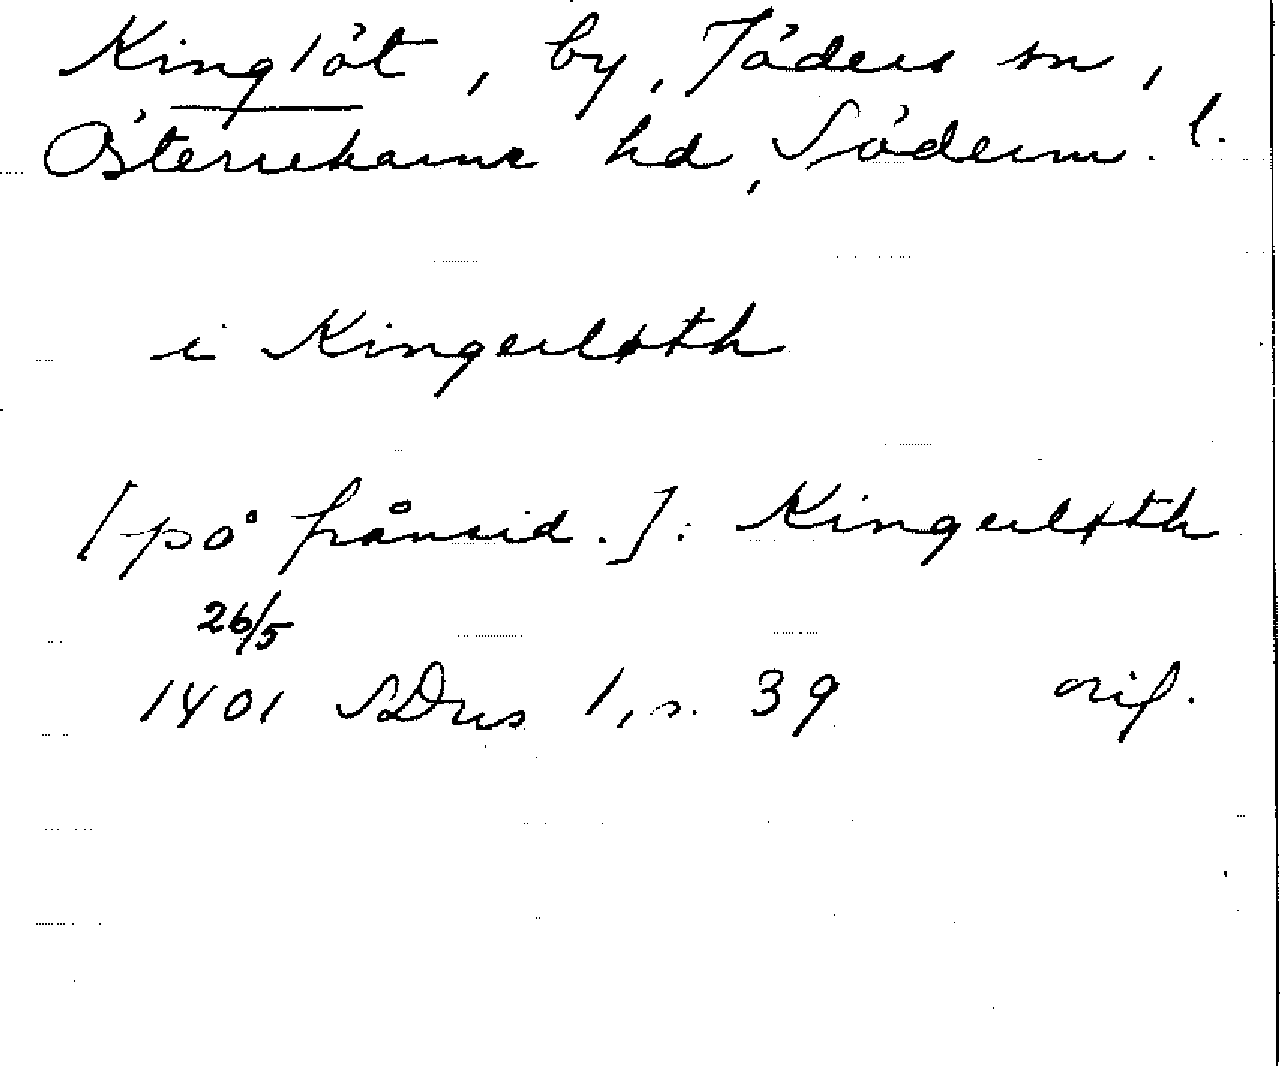 Kinglöt, by, Jäders sn,
Österrekarne hd, Söderm. l.
i Kingerløth
[på frånsid.]: Kingerløth
26/5
1401 SDns 1, s. 39 orig.